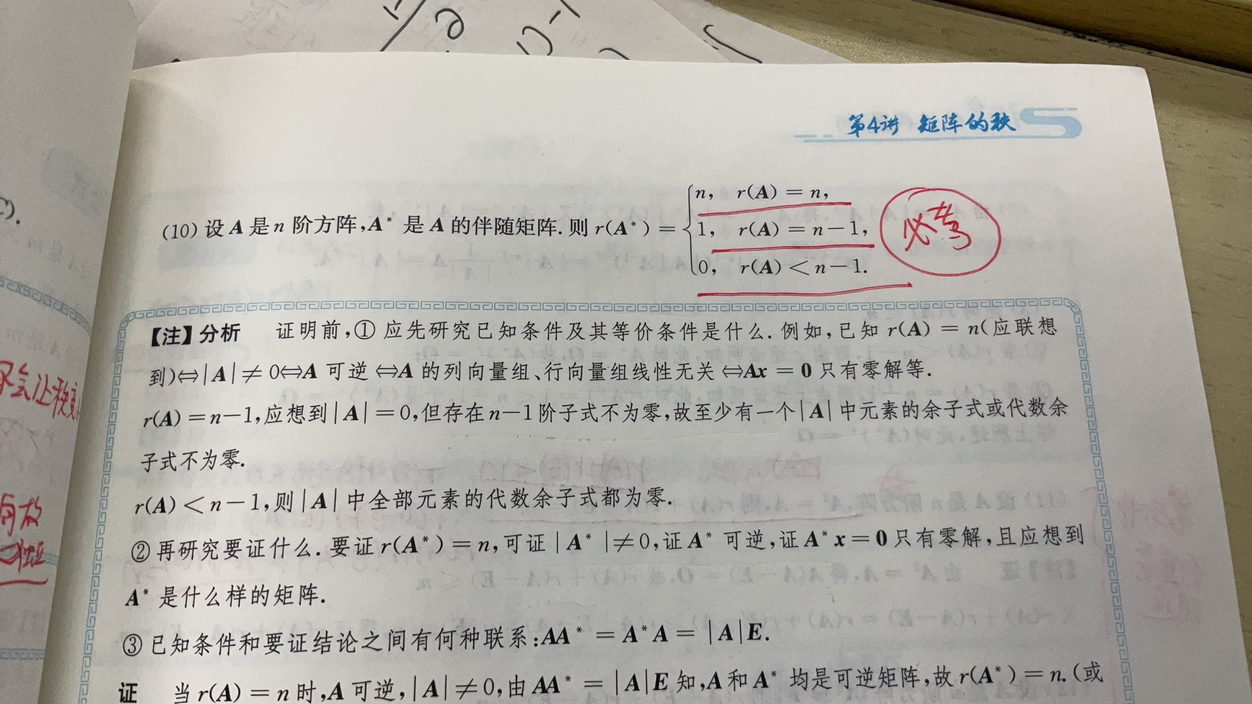 第4讲 矩阵的秩
(10) 设 A 是 n 阶方阵,A* 是 A 的伴随矩阵. 则 r(A*) = { n, r(A) = n,
1, r(A) = n-1,
0, r(A) < n-1.
必考
【注】分析 证明前,① 应先研究已知条件及其等价条件是什么. 例如,已知 r(A) = n(应联想
到)⇔|A| ≠ 0⇔A 可逆 ⇔A 的列向量组、行向量组线性无关 ⇔Ax = 0 只有零解等.
r(A) = n-1,应想到|A| = 0,但存在 n-1 阶子式不为零,故至少有一个|A|中元素的余子式或代数余
子式不为零.
r(A) < n-1,则|A|中全部元素的代数余子式都为零.
② 再研究要证什么. 要证 r(A*) = n,可证|A*|≠0,证 A* 可逆,证 A*x = 0 只有零解,且应想到
A* 是什么样的矩阵.
③ 已知条件和要证结论之间有何种联系:AA* = A*A = |A|E.
证 当 r(A) = n 时,A 可逆,|A| ≠ 0,由 AA* = |A|E 知,A 和 A* 均是可逆矩阵,故 r(A*) = n. (或